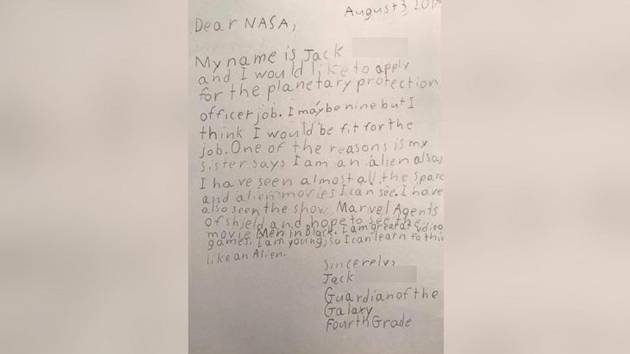 August 3, 201
Dear NASA,
My name is Jack
and I would like to apply
for the planetary protection
officer job. I may be nine but I
think I would be fit for the
job. One of the reasons is my
sister says I am an alien also
I have seen almost all the space
and alien movies I can see. I have
also seen the show Marvel Agents
of shield and hope to see the
movie Men in Black. I am great at vdieo
games. I am young, so I can learn to thin
like an Alien.
Sincerely,
Jack
Guardian of the
Galaxy
Fourth Grade